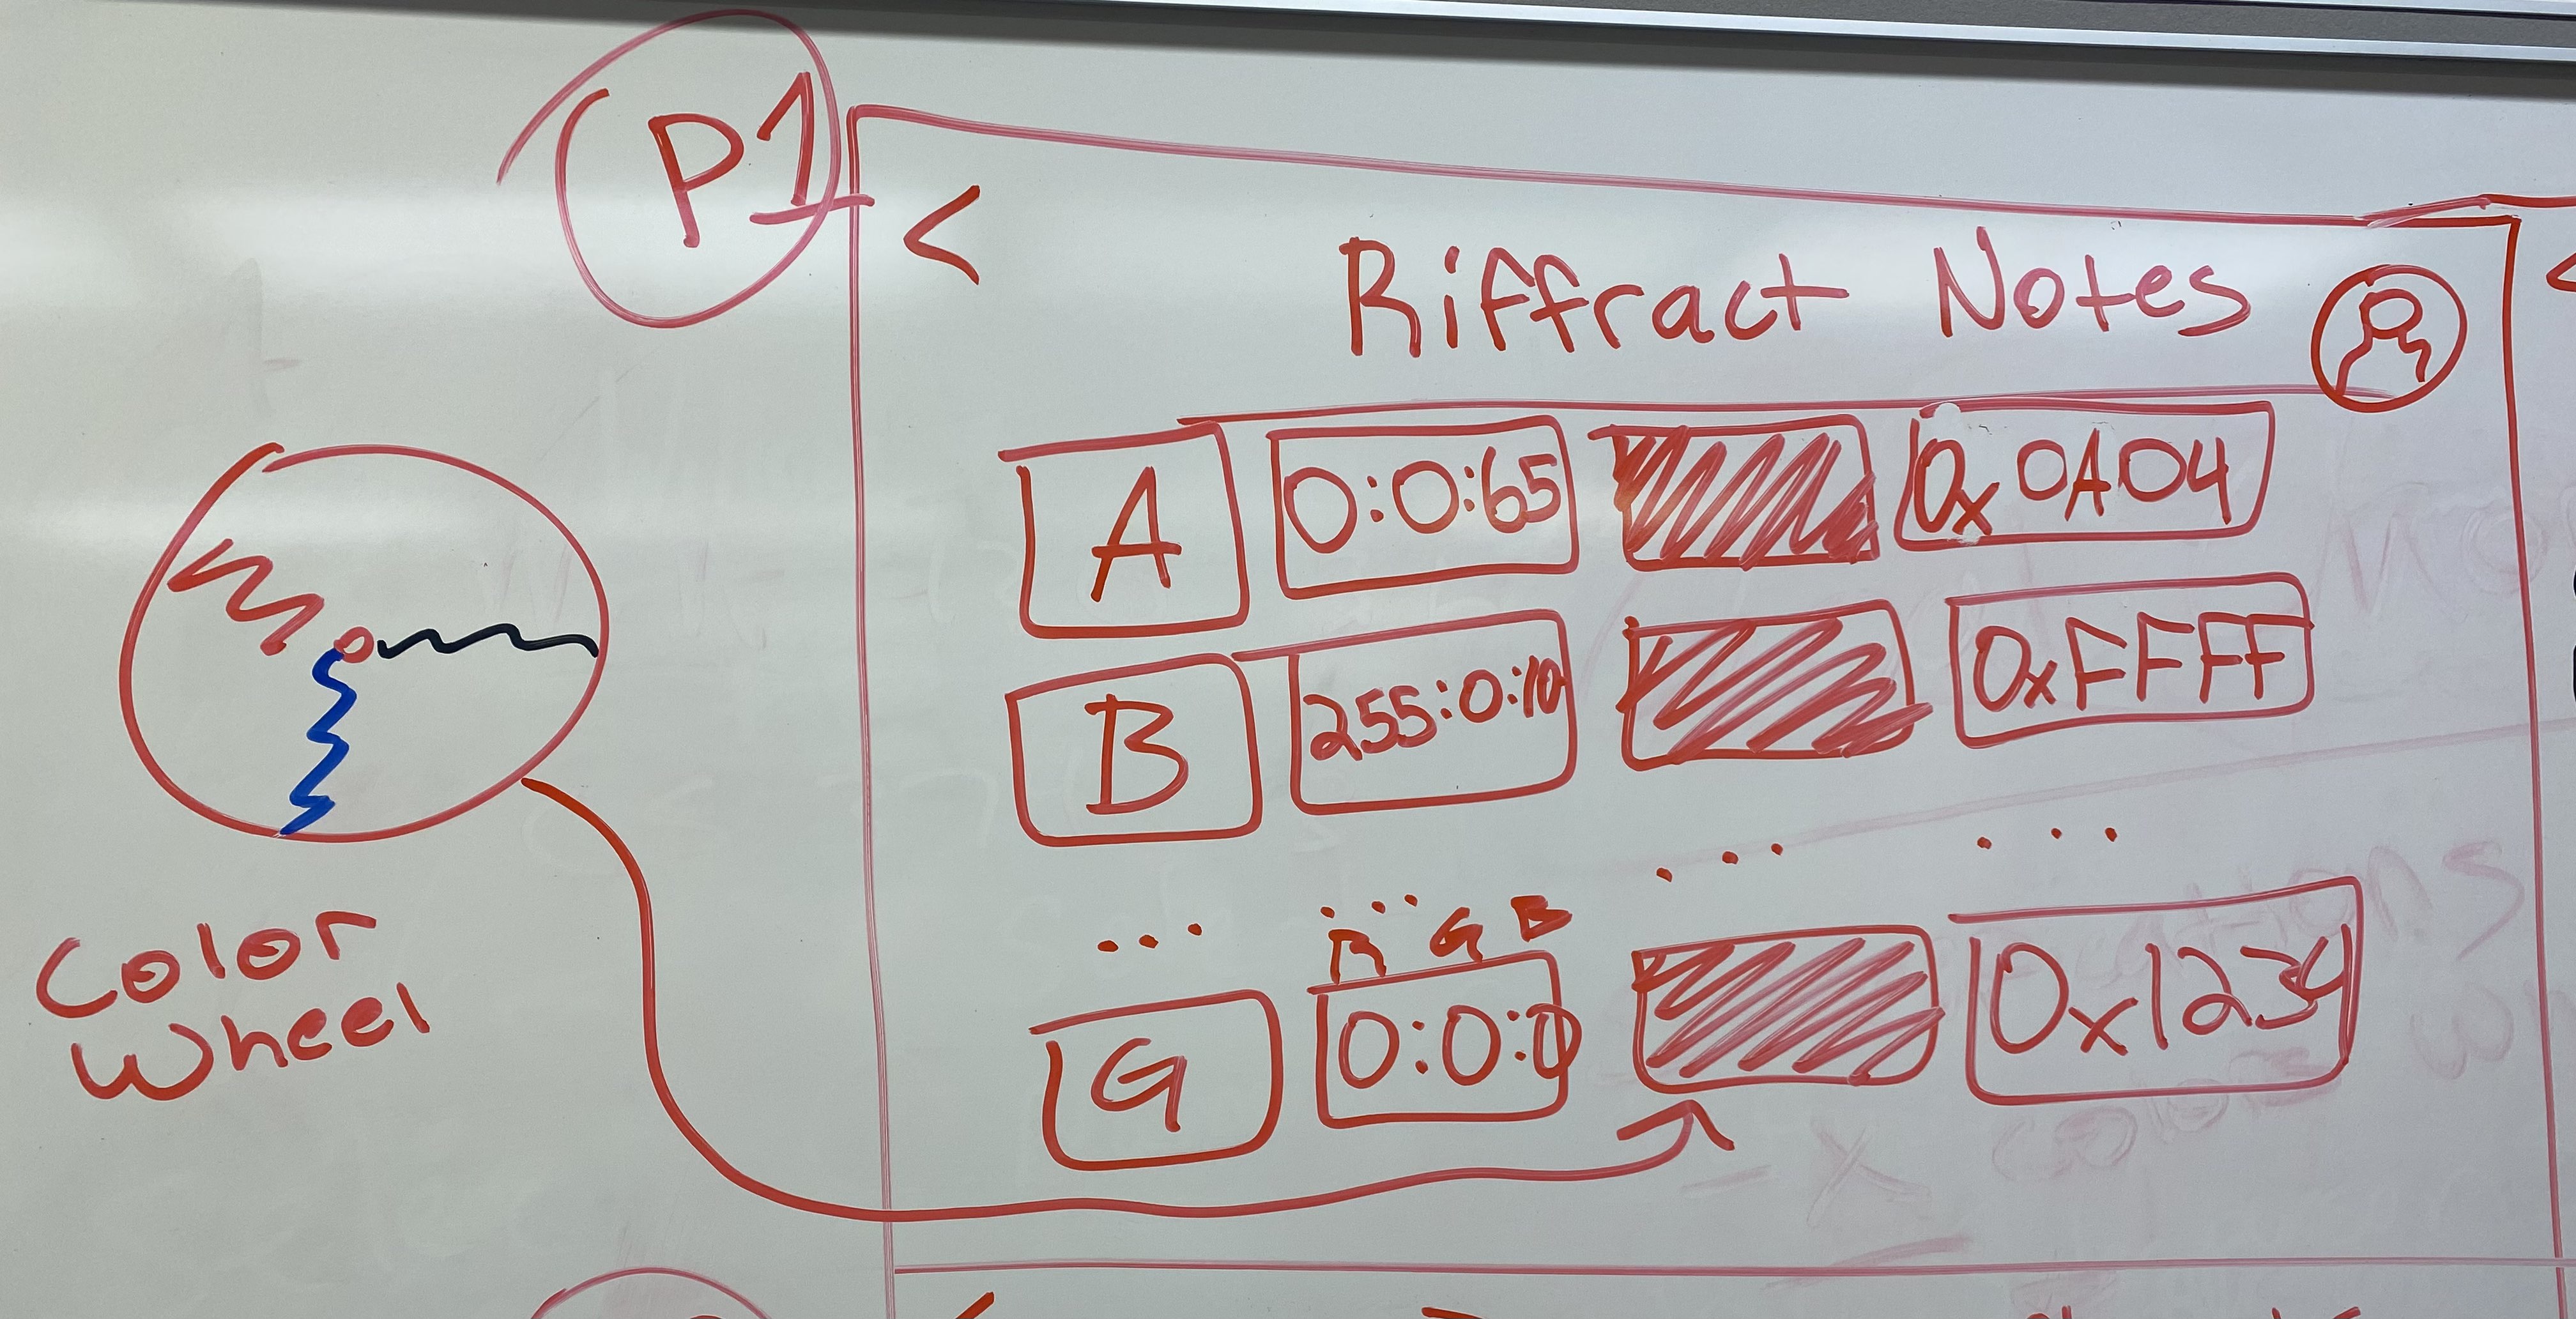 P1
<
Riffract Notes
A 0:0:65 0x0A04
B 255:0:10 0xFFFF
... ... ... ...
R G B
G 0:0:0 0x1234
Color
Wheel